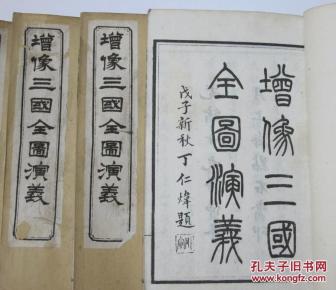 增像三國全圖演義
增像三國全圖演義
增像三國
全圖演義
戊子新秋丁仁煒題
孔夫子旧书网